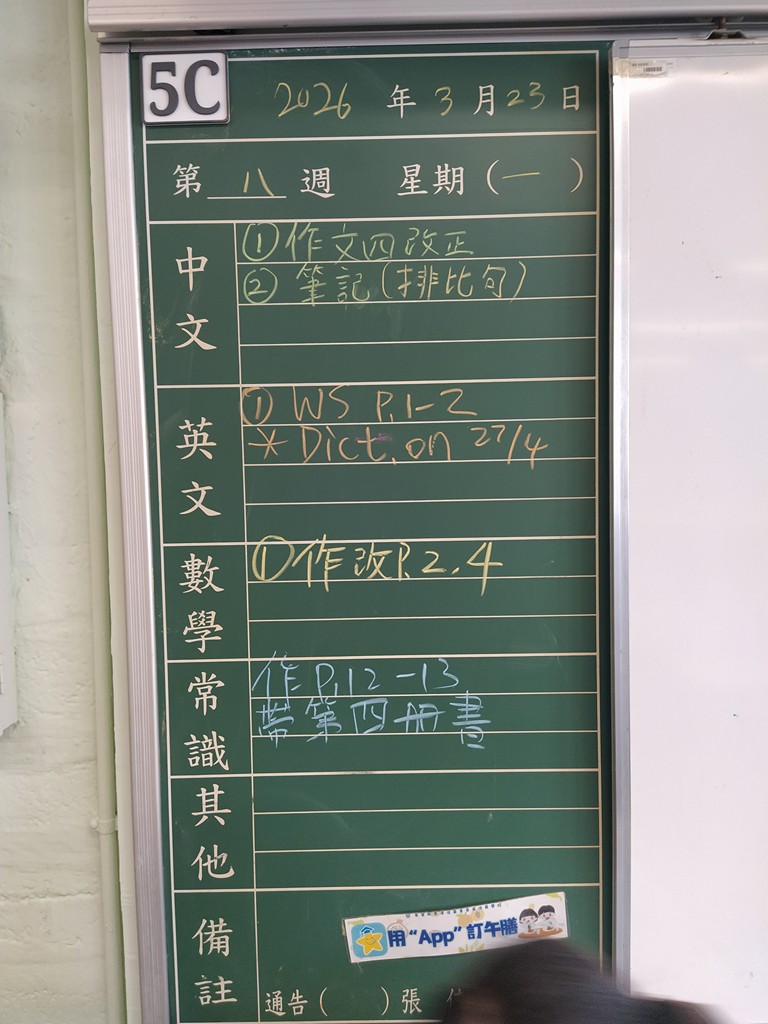 5C
2026 年 3 月 23 日
第 八 週 星期 (一)
中文
① 作文四改正
② 筆記 (排比句)
英文
① WS P.1-2
* Dict. on 27/4
數學
① 作改 P.2.4
常識
作 P.12-13
帶第四冊書
其他
備註
用"App"訂午膳
通告 ( ) 張